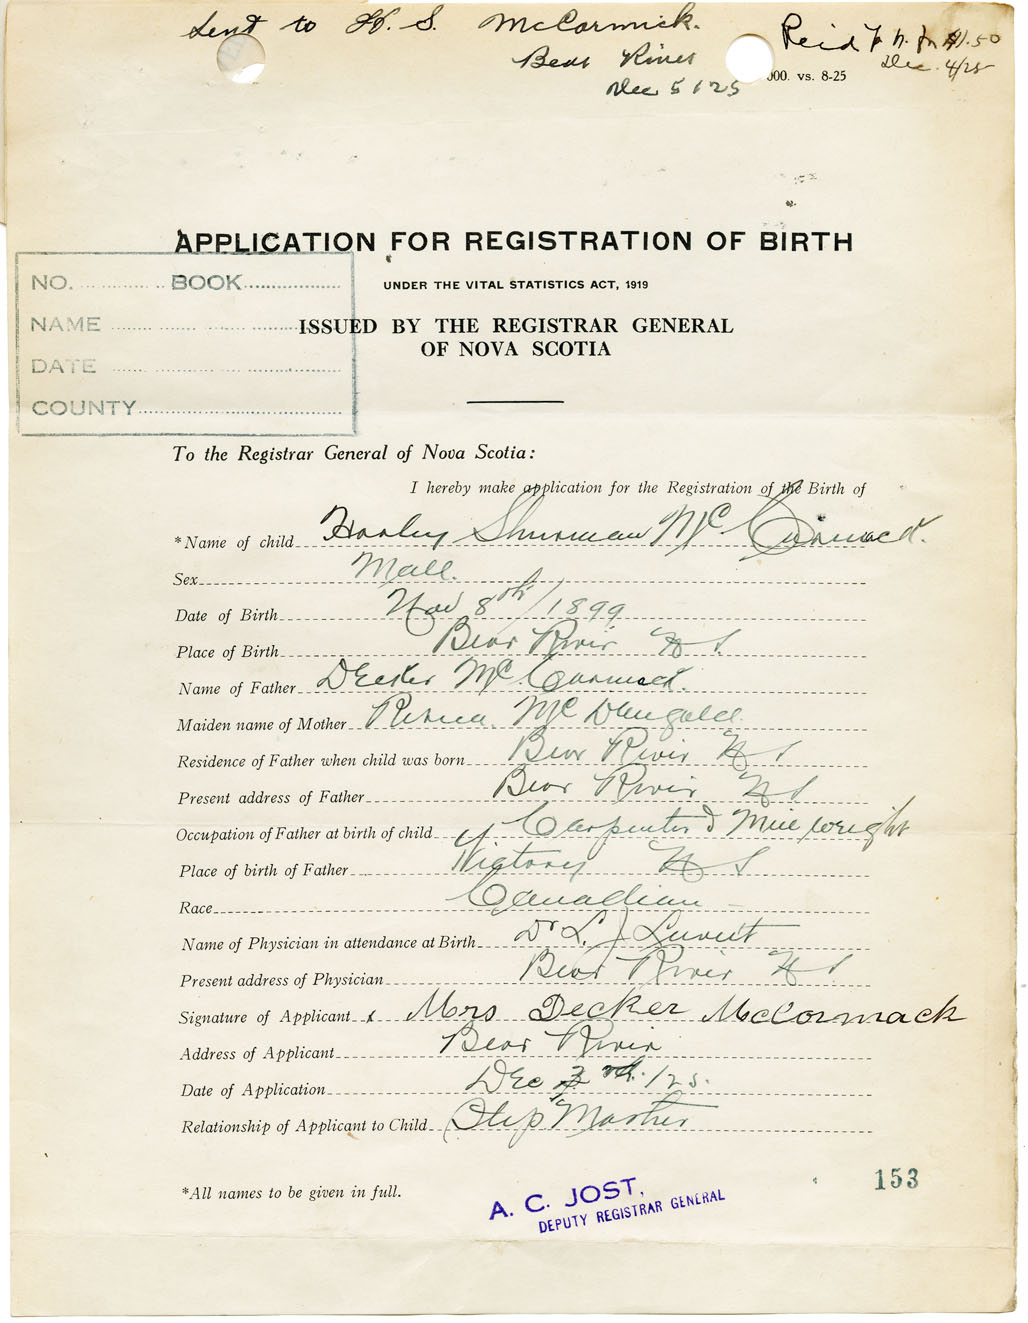 Sent to H. S. McCormick.
Bear River
Dec 5/25
Paid $1.50
Dec. 4/25
000. vs. 8-25
APPLICATION FOR REGISTRATION OF BIRTH
UNDER THE VITAL STATISTICS ACT, 1919
ISSUED BY THE REGISTRAR GENERAL
OF NOVA SCOTIA
NO. BOOK
NAME
DATE
COUNTY
To the Registrar General of Nova Scotia:
I hereby make application for the Registration of the Birth of
*Name of child Harley Shurman McCormack.
Sex Male.
Date of Birth Nov 8th/1899
Place of Birth Bear River N S.
Name of Father Decker McCormack.
Maiden name of Mother McDougald
Residence of Father when child was born Bear River N S
Present address of Father Bear River N S
Occupation of Father at birth of child Carpenter & Millwright
Place of birth of Father Victory N S
Race Canadian
Name of Physician in attendance at Birth Dr L. J. Lovitt
Present address of Physician Bear River N S
Signature of Applicant x Mrs Decker McCormack
Address of Applicant Bear River
Date of Application Dec /25.
Relationship of Applicant to Child Step Mother
*All names to be given in full.
153
A. C. JOST,
DEPUTY REGISTRAR GENERAL